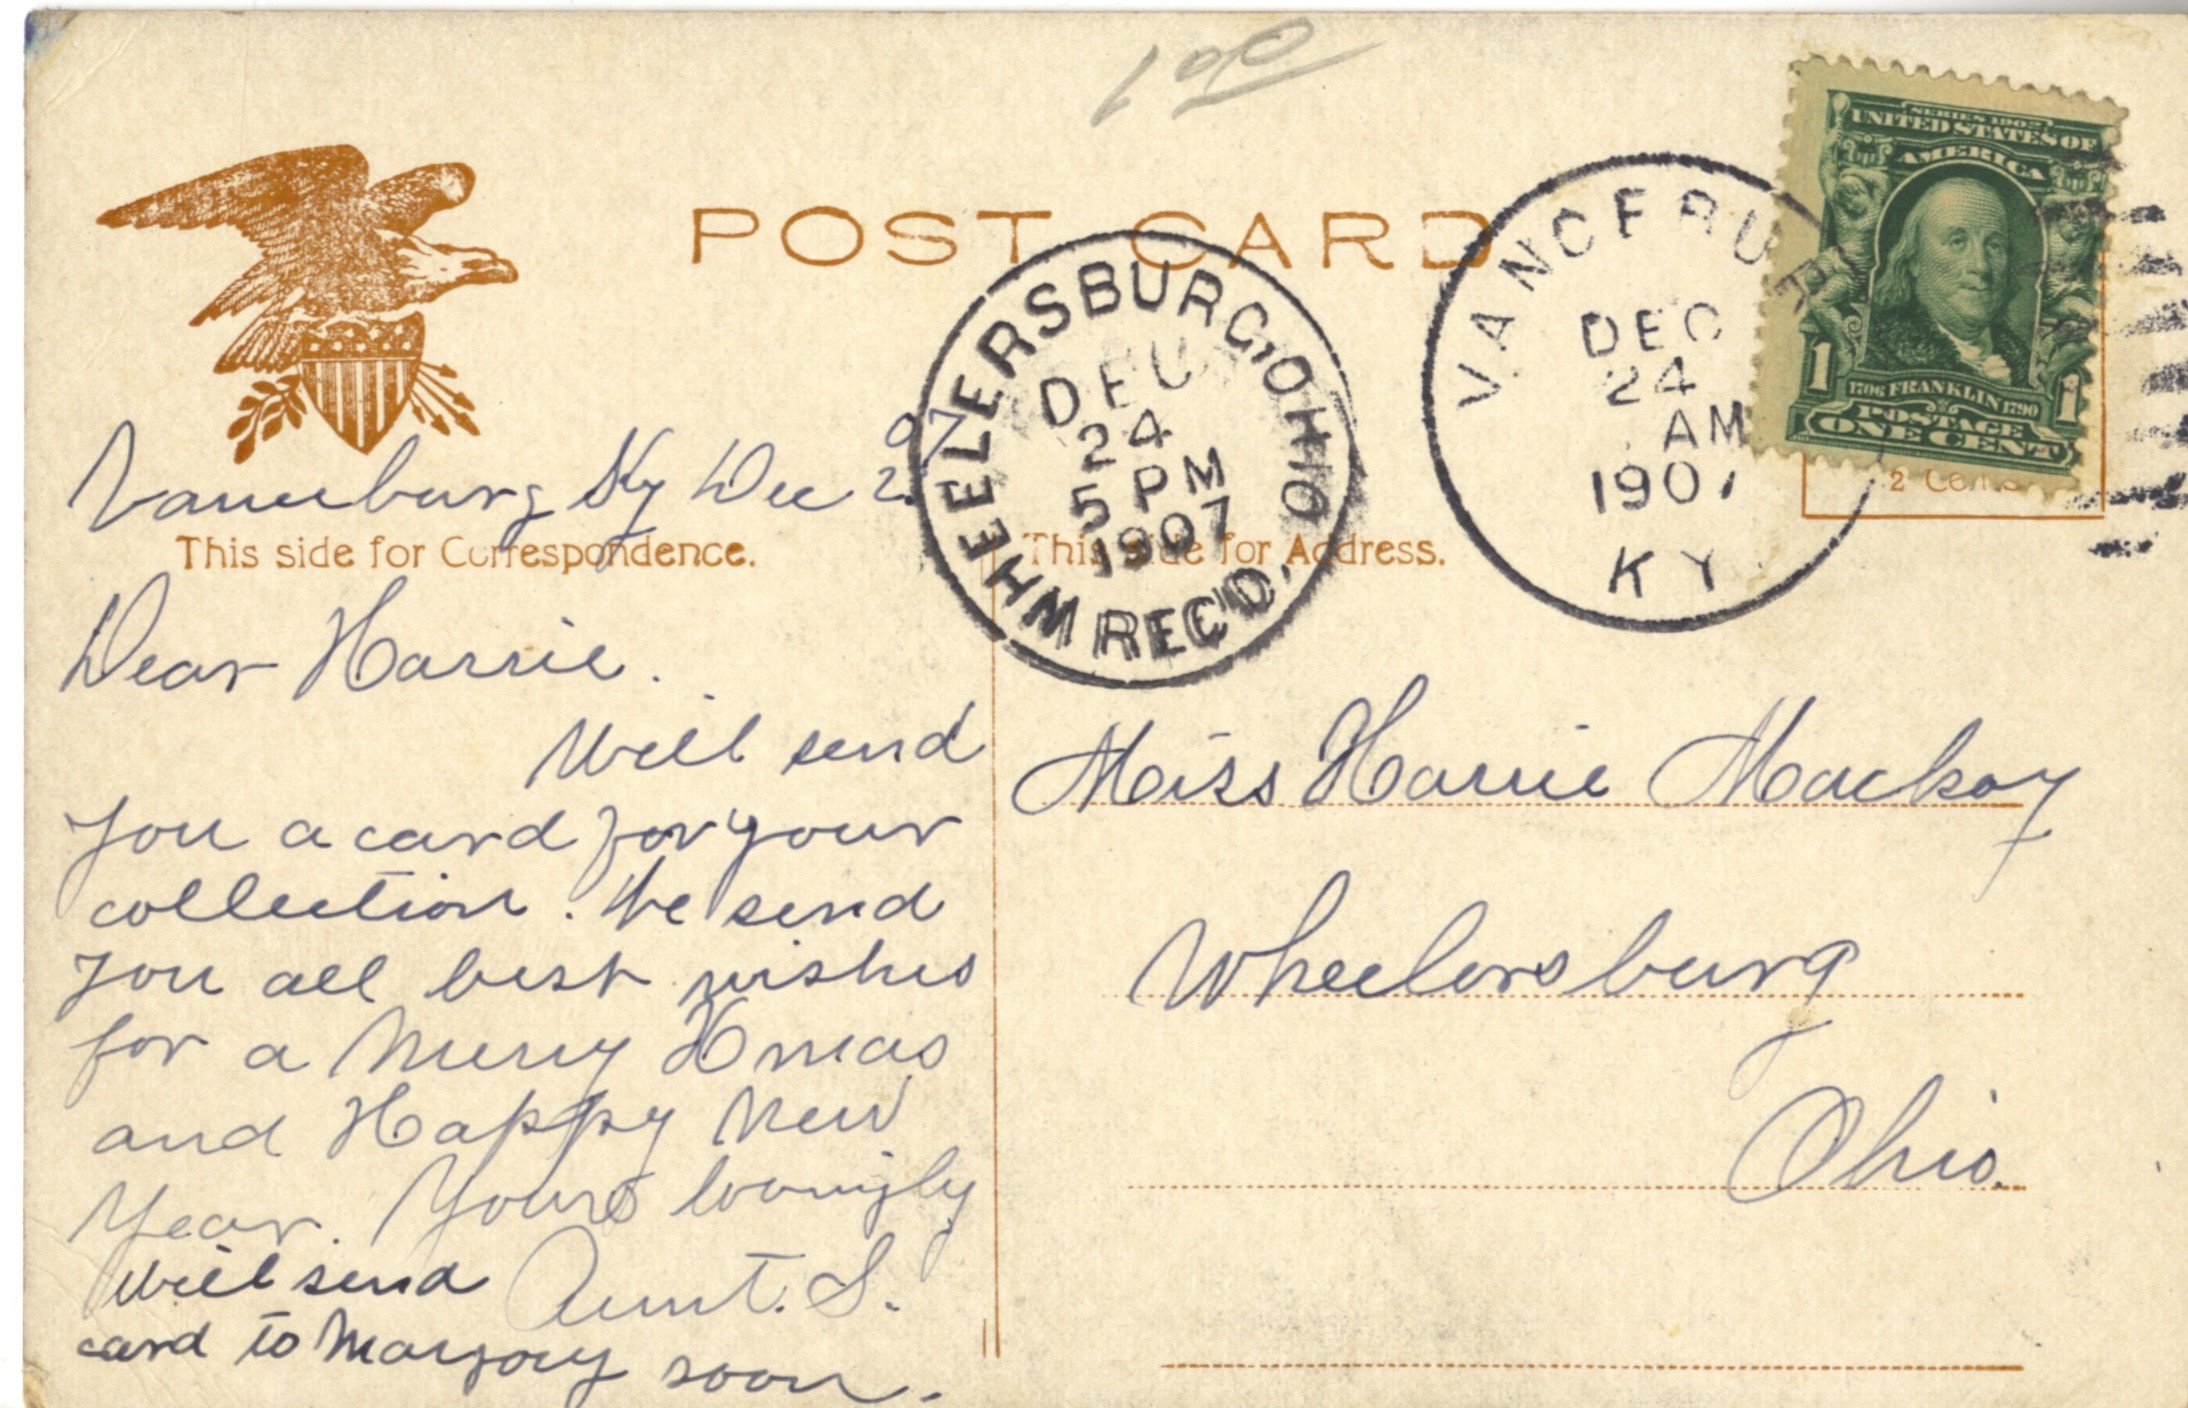 1 00
POST CARD
SERIES 1902
UNITED STATES OF
AMERICA
1706 FRANKLIN 1790
POSTAGE
1 1
ONE CENT
2 Cents
VANCEBURG
DEC
24
AM
1907
KY
WHEELERSBURG, OHIO
DEC
24
5 PM
1907
REC'D.
Vanceburg Ky Dec 07
This side for Correspondence.
This side for Address.
Dear Harrie.
Will send
you a card for your
collection. We send
you all best wishes
for a Merry Xmas
and Happy New
Year. Yours lovingly
Aunt. S.
Will send
card to Marjory soon.
Miss Harrie Mackoy
Wheelersburg
Ohio.